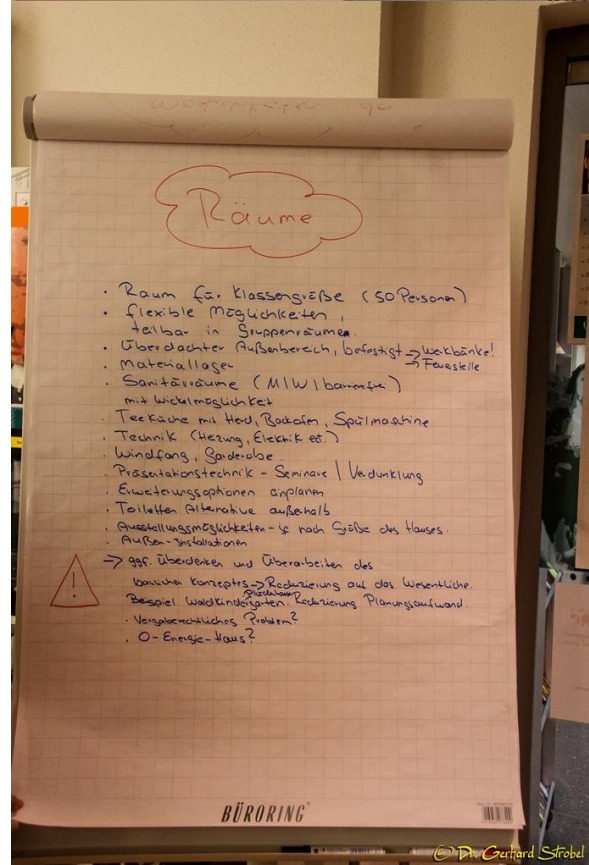 Räume
· Raum für Klassengröße (50 Personen)
· flexible Möglichkeiten,
teilbar in Gruppenräumen.
· Überdachter Außenbereich, befestigt → Werkbänke!
→ Feuerstelle
· Materiallager
· Sanitärräume (M/W/barrierefrei)
mit Wickelmöglichkeit
· Teeküche mit Herd, Backofen, Spülmaschine
· Technik (Heizung, Elektrik etc.)
· Windfang, Garderobe.
· Präsentationstechnik - Seminare / Verdunklung
· Erweiterungsoptionen einplanen
· Toiletten Alternative außerhalb
· Ausstellungsmöglichkeiten - je nach Größe des Hauses.
· Außen-Installationen
! → ggf. Überdenken und Überarbeiten des
baulichen Konzeptes → Reduzierung auf das Wesentliche.
Beispiel Waldkindergarten. Reduzierung Planungsaufwand.
· Vergaberechtliches Problem?
· 0-Energie-Haus?
BÜRORING
© Dr. Gerhard Strobel